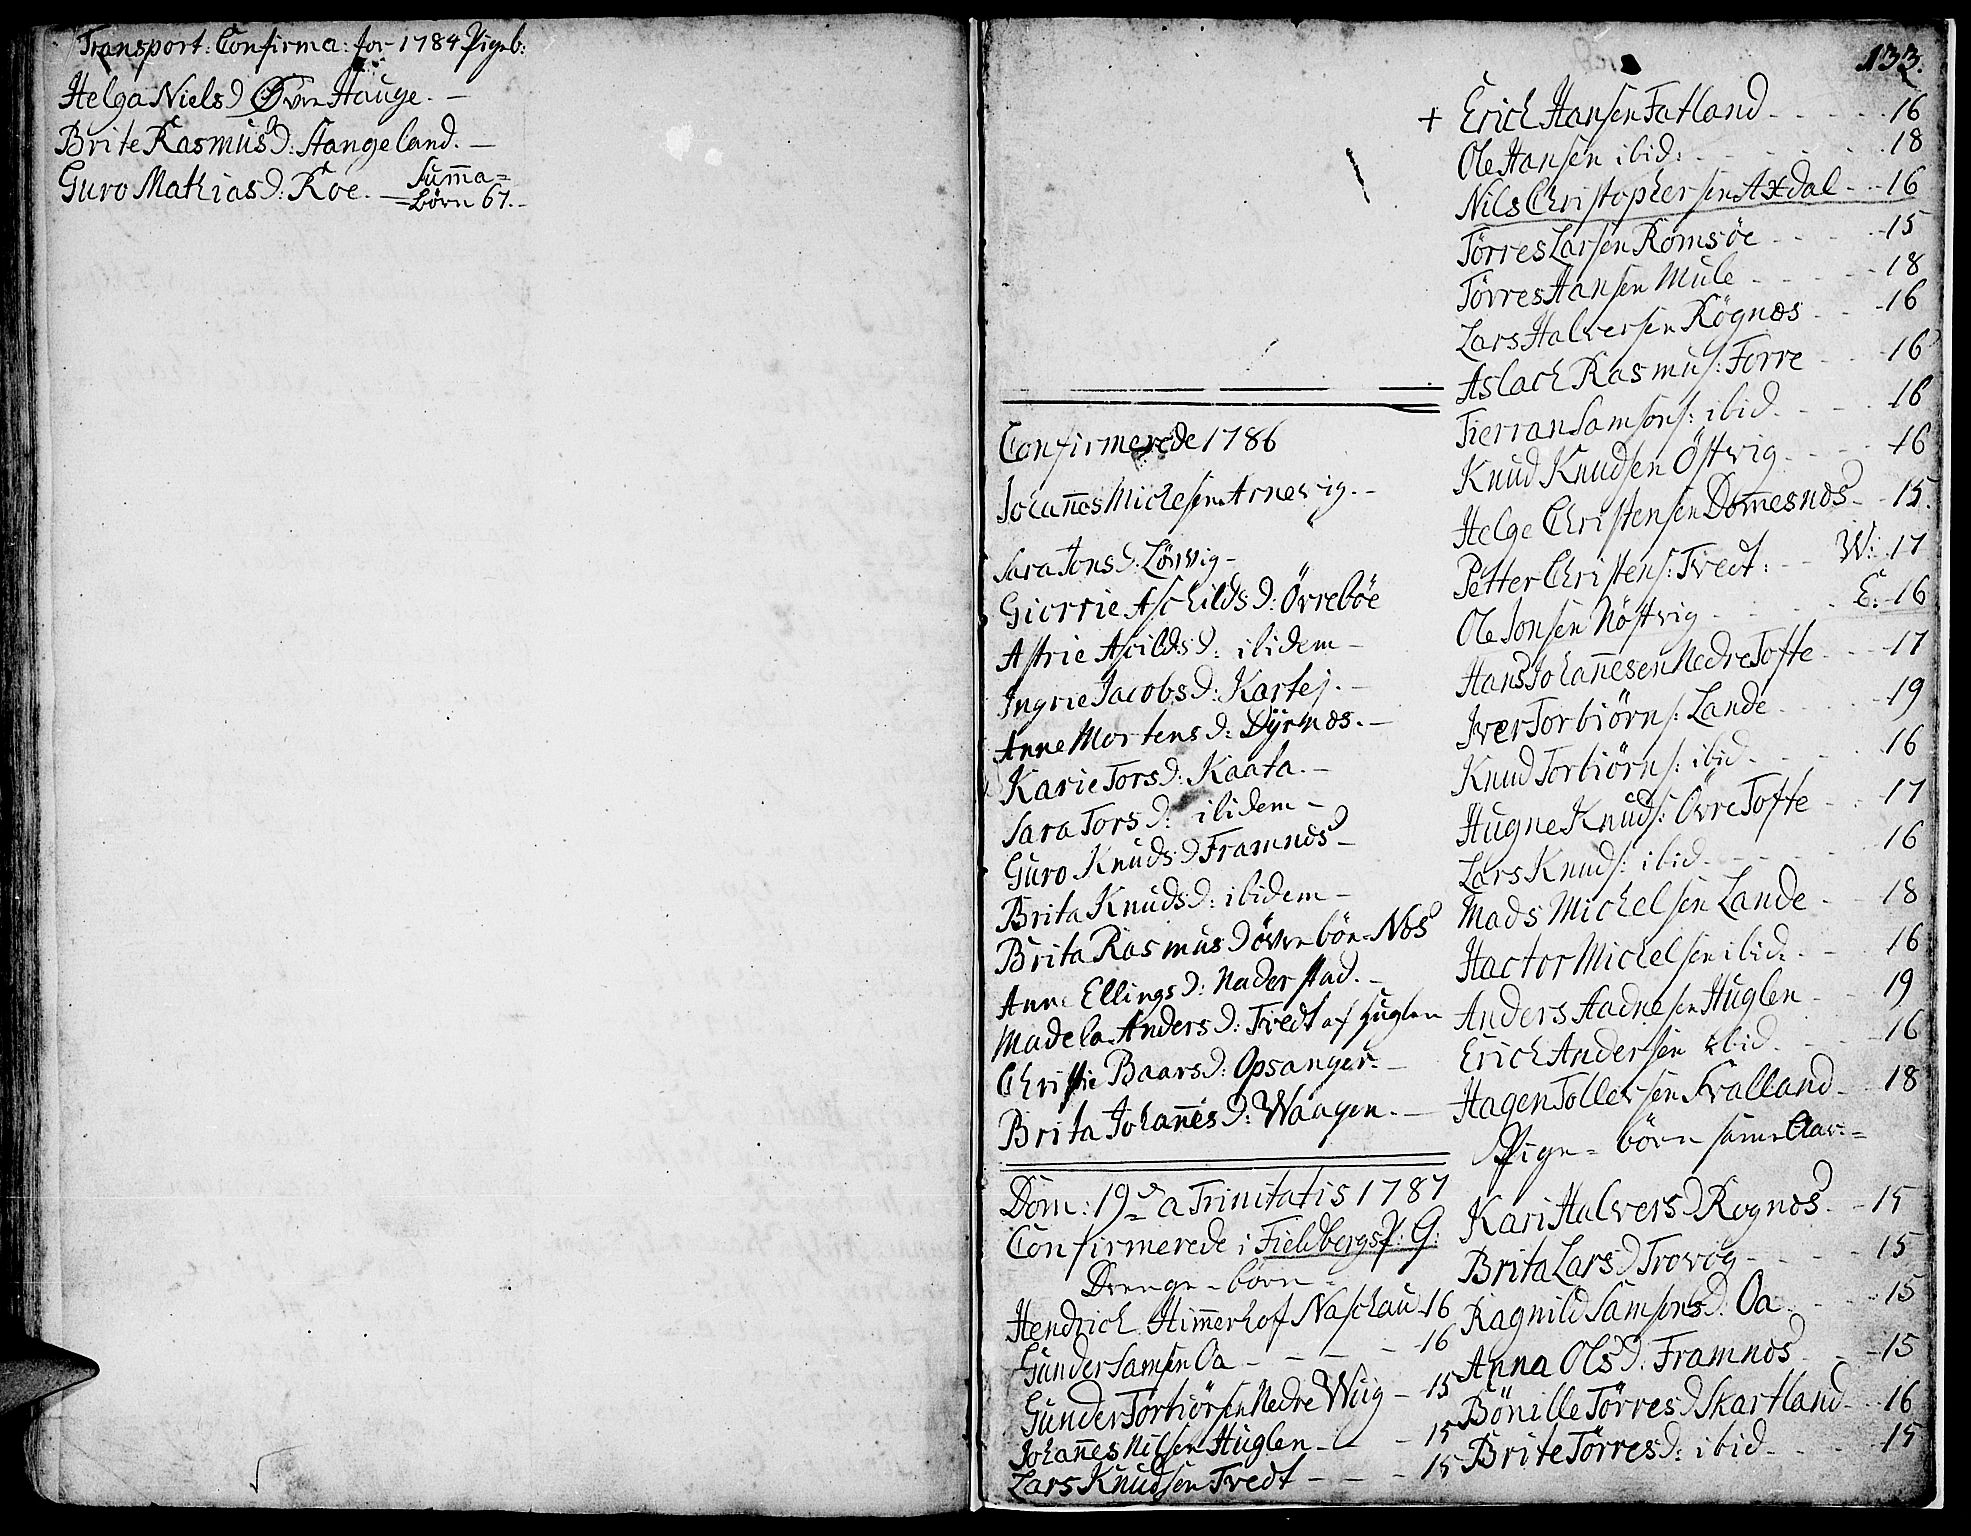 Transport: Confirma: for 1784 Pigeb:
Helga Niels D Øvre Hauge. —
Brite Rasmus D: Stangeland. —
Guro Mathias D: Roe. — Sum̄a =
= börn 67. -
133.
Confirmerede 1786
Johan̄es Michelsen Arnevig. -
Sara Jons D: Lönvig -
Giorrie Aschilds D: Övreböe
Astrie Ascilds D: ibidem -
Ingrie Jacobs D: Kartej. -
Anne Mortens D: Dyrnæs. -
Karie Tors D: Kaata. -
Sara Tors D: ibidem -
Guro Knuds D Framnæs -
Brita Knuds D: ibidem -
Brita Rasmus D övre bön - Næs
Anne Ellings D: Naderstad. -
Madela Anders D: Tvedt af Huglen
Christie Baars D: Opsanger. -
Brita Johan̄es D: Waagen. -
Dom: 19 a Trinitatis 1787
Confirmerede i Fieldbergs P: G:
Drenge - börn -
Hendrich Him̄erhof Naschau - 16
Gunder Samsen Oa - - - - 16
Gunder Torbiörsen Nedre Wiig - 15
Johan̄es Nilsen Huglen - - - 15
Lars Knudsen Tvedt - - - 15
+ Erich Hansen Fatland - - - 16
Ole Hansen ibid: - - - 18
Nils Christophersen Axdal - - 16
Törres Larsen Romsöe - - - 15
Törres Hansen Mule - - - 18
Lars Halversen Rögnæs - - 16
Aslach Rasmus: Forre - 16
Tierran Samsons: ibid. - - - 16
Knud Knudsen Östvig - - - 16
Helge Christensen Dom̄esnæs - - 15.
Petter Christens: Tvedt: - - W: 17
Ole Jonsen Nöstvig - - - E: 16
Hans Johan̄esen Nedre Tofte - - - 17
Iver Torbiörns: Lande - - - 19
Knud Torbiörns: ibid - - - 16
Hugne Knuds: Övre Tofte - - 17
Lars Knuds: ibid - - - 16
Mads Michelsen Lande - - 18
Hactor Michelsen ibid: - - 16
Anders Aadnesen Huglen - - 19
Erich Andersen ibid. - - - 16
Hagen Tollevsen Tvalland - - 18
Pige = börn sam̄e Aar: =
Kari Halvers D Rognæs. - 15
Brita Lars D Trovog - - - 15
Ragnild Samsons D: Oa - - - 15
Anna Ols D. Framnæs - - - 15
Bönille Törres D Skartland - - 16
Brite Törres D: ibid - - - 15